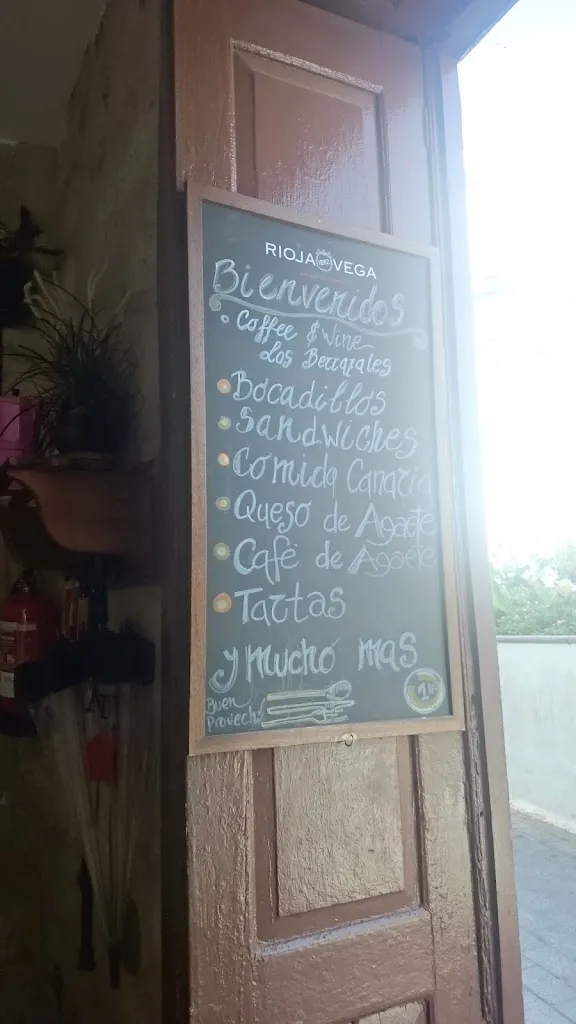 RIOJA VEGA
Bienvenidos
Coffee & Wine
Los Berrazales
Bocadillos
Sandwiches
Comida Canaria
Queso de Agaete
Café de Agaete
Tartas
y mucho mas
Buen
Provecho